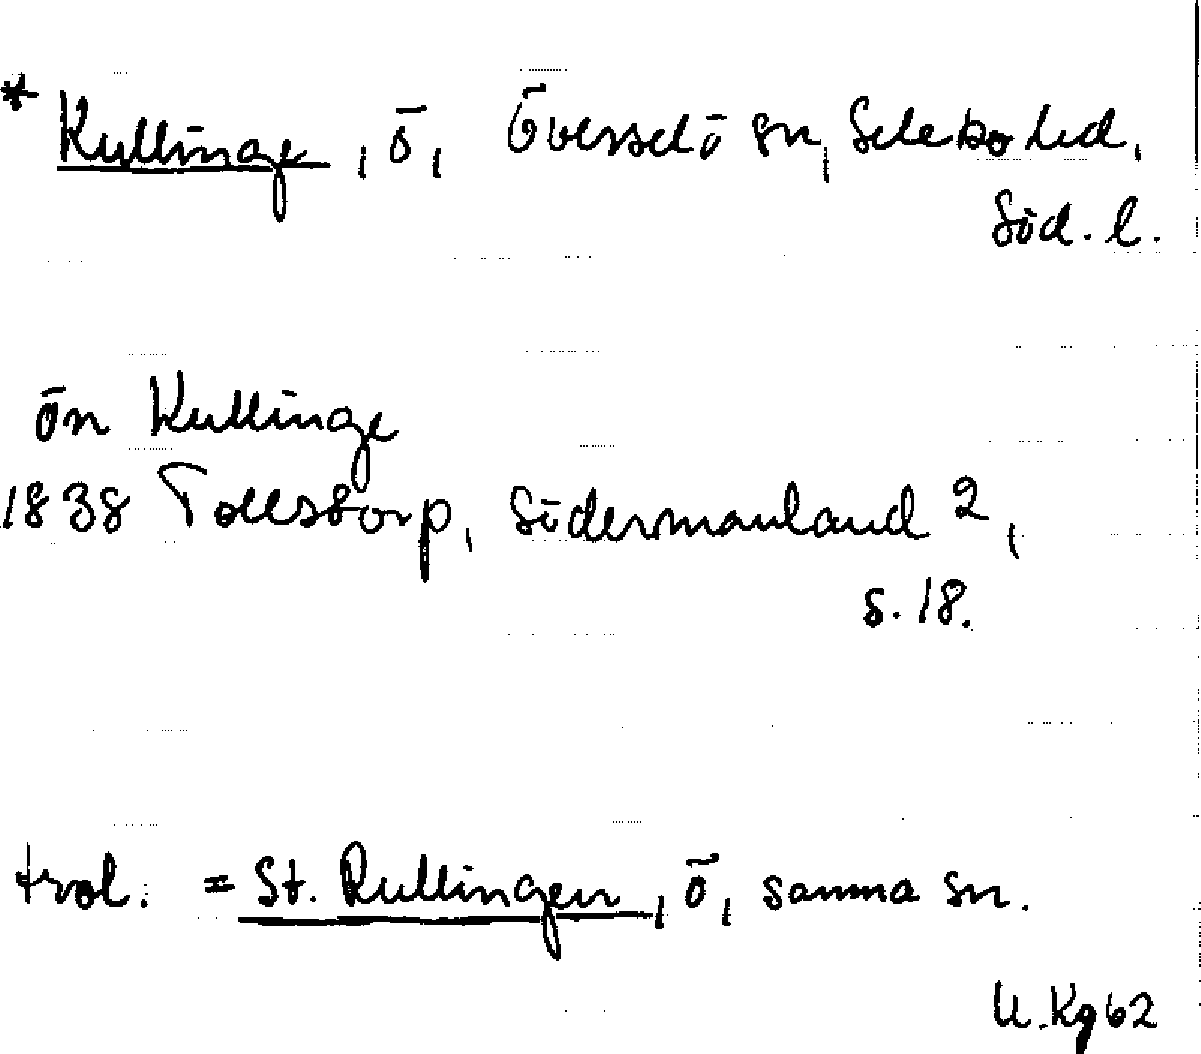 * Kullinge, ö, Överselö sn, Selebo hd,
Söd. l.
ön Kullinge
1838 Tollstorp, Södermanland 2,
s. 18.
trol. = St. Rullingen, ö, samma sn.
U.Kg 62